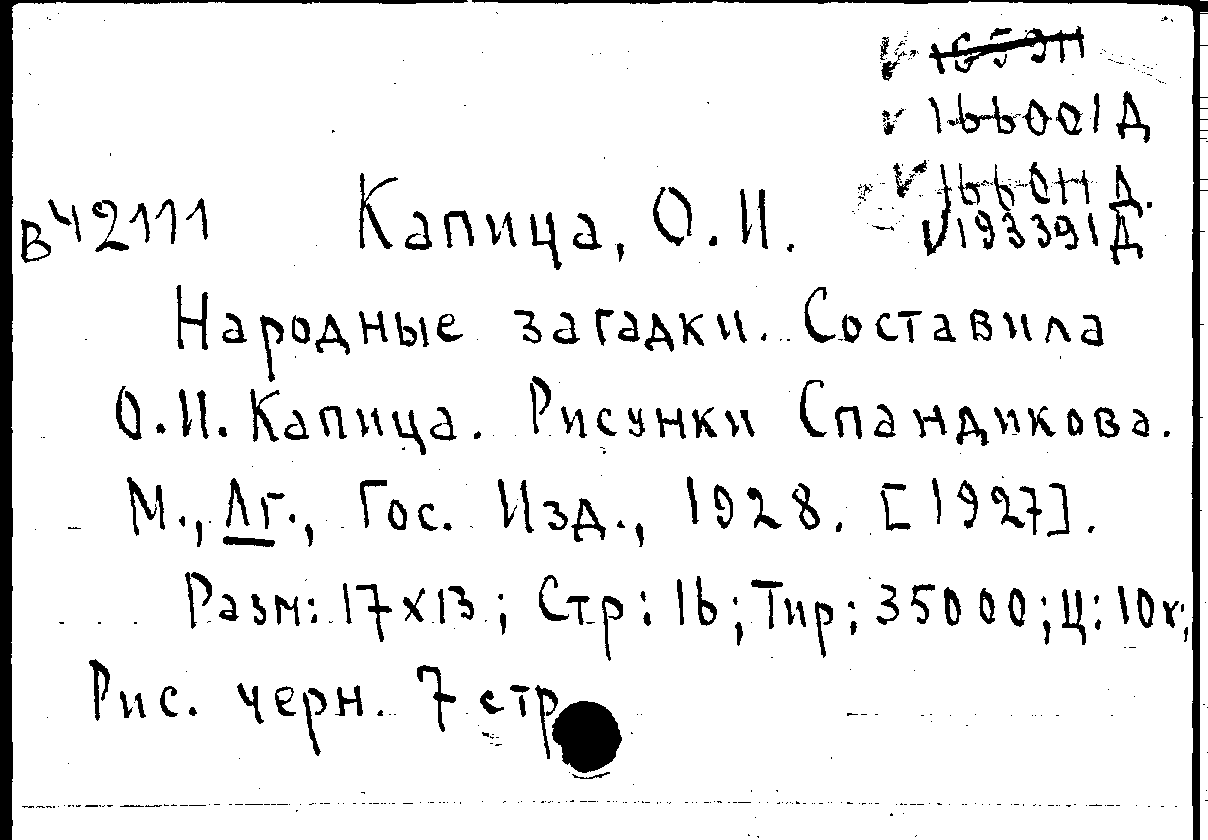 V 165911
V 166001 Д
V 166011 Д.
В Ч2111 Капица, О.И. V 193391 Д
Народные загадки. Составила
О.И. Капица. Рисунки Спандикова.
М., Лг., Гос. Изд., 1928. [1927].
Разм: 17x13; Стр: 16; Тир: 35000; Ц: 10к;
Рис. черн. 7 стр